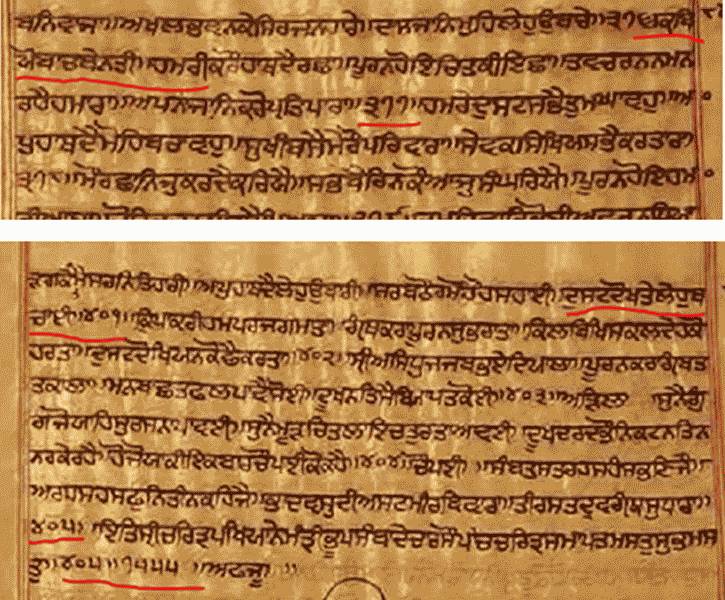 ਅਖਲਭਵਨਕੇਸਿਰਜਨਹਾਰੇ॥ਦਾਸਜਾਨਿਮੁਹਿਲੇਹੁਉਬਾਰੇ॥ ਕਬਿ
ਯੋਬਾਚਬੇਨਤੀ॥ਹਮਰੀਕਰੋਹਾਥਦੈਰਛਾ॥ਪੂਰਨਹੋਇਚਿਤਕੀਇਛਾ॥ਤਵਚਰਨਨਮਨ
ਰਹੈਹਮਾਰਾ॥ਅਪਨਾਜਾਨਿਕਰੋਪ੍ਰਤਿਪਾਰਾ॥੩੭੭॥ਹਮਰੇਦੁਸਟਸਭੈਤੁਮਘਾਵਹੁ॥ਆ
ਪੁਹਾਥਦੈਮੋਹਿਬਚਾਵਹੁ॥ਸੁਖੀਬਸੈਮੋਰੋਪਰਿਵਾਰਾ॥ਸੇਵਕਸਿਖਿਅਸਭੈਕਰਤਾਰਾ॥
੩੭੮॥ਮੋਰਛਾਨਿਜੁਕਰਦੈਕਰਿਯੈ॥ਸਭਬੈਰਿਨਕੌਆਜੁਸੰਘਰਿਯੈ॥ਪੂਰਨਹੋਇਹਮ
ਸਰਨਿਤਿਹਾਰੀ॥ਆਪੁਹਾਥਦੈਲੇਹੁਉਬਾਰੀ॥ਸਰਬਠੌਰਮੋਹੋਹੁਸਹਾਈ॥ਦੁਸਟਦੋਖਤੇਲੇਹੁਬ
ਚਾਈ॥੪੦੧॥ਕ੍ਰਿਪਾਕਰੀਹਮਪਰਜਗਮਾਤਾ॥ਗ੍ਰੰਥਕਰਾਪੂਰਨਸੁਭਰਾਤਾ॥ਕਿਲਬਿਖਸਕਲਦੇਹਕੋ
ਹਰਤਾ॥ਦੁਸਟਦੋਖਿਯਨਕੋਛੈਕਰਤਾ॥੪੦੨॥ਸ੍ਰੀਅਸਿਧੁਜਜਬਭਏਦਿਆਲਾ॥ਪੂਰਨਕਰਾਗ੍ਰੰਥਤ
ਤਕਾਲਾ॥ਮਨਬਾਛਤਫਲਪਾਵੈਸੋਈ॥ਦੂਖਨਤਿਸੈਬਿਆਪਤਕੋਈ॥੪੦੩॥ਅੜਿਲ॥ਸੁਨੈਗੁੰ
ਗਜੋਯਾਹਿਸੁਰਸਨਾਪਾਵਈ॥ਸੁਨੈਮੂੜਚਿਤਲਾਇਚਤੁਰਤਾਆਵਈ॥ਦੂਖਦਰਦਭੌਨਿਕਟਨਤਿਨ
ਨਰਕੇਰਹੈ॥ਹੋਜੋਯਾਕੀਇਕਬਾਰਚੌਪਈਕੋਕਹੈ॥੪੦੪॥ਚੌਪਈ॥ਸੰਬਤਸਤ੍ਰਹਸਹਸਭਣਿਜੈ॥
ਅਰਧਸਹਸਫੁਨਿਤੀਨਕਹਿਜੈ॥ਭਾਦ੍ਰਵਸੁਦੀਅਸਟਮੀਰਵਿਵਾਰਾ॥ਤੀਰਸਤੁਦ੍ਰਵਗ੍ਰੰਥਸੁਧਾਰਾ॥
੪੦੫॥ਇਤਿਸ੍ਰੀਚਰਿਤ੍ਰਪਖਿਯਾਨੇਮੰਤ੍ਰੀਭੂਪਸੰਬਾਦੇਚਾਰਸੌਪਾਂਚਚਰਿਤ੍ਰਸਮਾਪਤਮਸਤੁਸੁਭਮਸ
ਤੁ॥੪੦੫॥੭੫੫੫॥ਅਫਜੂ॥